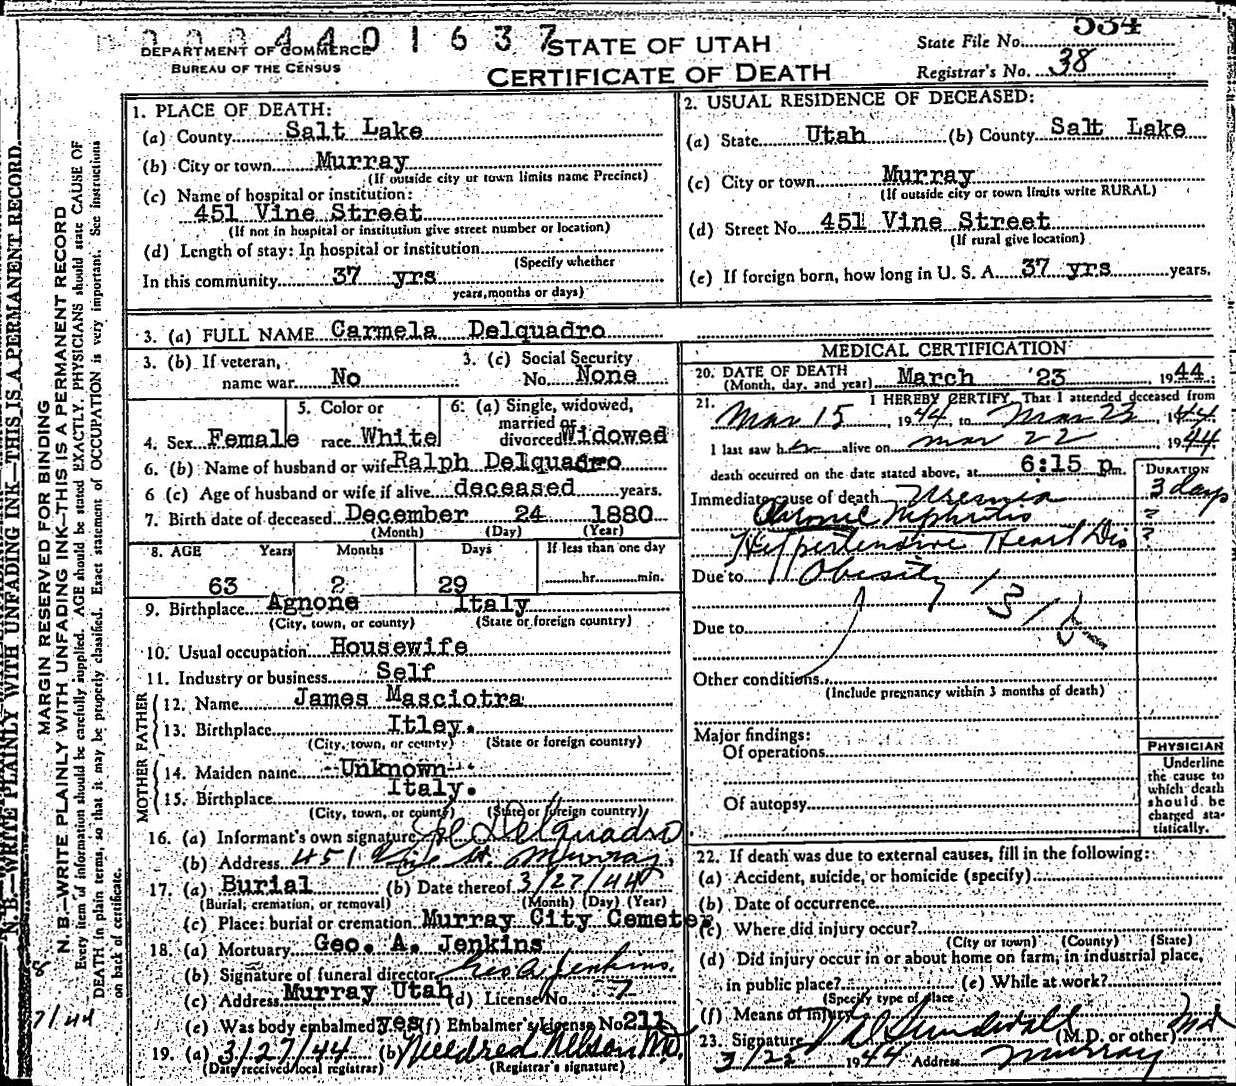 534
DEPARTMENT OF COMMERCE
BUREAU OF THE CENSUS
4401637
STATE OF UTAH
CERTIFICATE OF DEATH
State File No.
Registrar's No. 38
N. B.—WRITE PLAINLY WITH UNFADING INK—THIS IS A PERMANENT RECORD
MARGIN RESERVED FOR BINDING
N. B.—WRITE PLAINLY WITH UNFADING INK—THIS IS A PERMANENT RECORD
Every item of information should be carefully supplied. AGE should be stated EXACTLY. PHYSICIANS should state CAUSE OF
DEATH in plain terms, so that it may be properly classified. Exact statement of OCCUPATION is very important. See instructions
on back of certificate.
1. PLACE OF DEATH:
(a) County Salt Lake
(b) City or town Murray
(If outside city or town limits name Precinct)
(c) Name of hospital or institution:
451 Vine Street
(If not in hospital or institution give street number or location)
(d) Length of stay: In hospital or institution
(Specify whether
In this community 37 yrs
years, months or days)
2. USUAL RESIDENCE OF DECEASED:
(a) State Utah (b) County Salt Lake
(c) City or town Murray
(If outside city or town limits write RURAL)
(d) Street No. 451 Vine Street
(If rural give location)
(e) If foreign born, how long in U. S. A. 37 yrs years.
3. (a) FULL NAME Carmela Delquadro
3. (b) If veteran, name war No
3. (c) Social Security No. None
4. Sex Female
5. Color or race White
6. (a) Single, widowed, married or divorced Widowed
6. (b) Name of husband or wife Ralph Delquadro
6 (c) Age of husband or wife if alive deceased years.
7. Birth date of deceased December 24 1880
(Month) (Day) (Year)
8. AGE Years Months Days If less than one day
63 2 29 hr. min.
9. Birthplace Agnone Italy
(City, town, or county) (State or foreign country)
10. Usual occupation Housewife
11. Industry or business Self
FATHER
12. Name James Masciotra
13. Birthplace Itley.
(City, town, or county) (State or foreign country)
MOTHER
14. Maiden name Unknown
15. Birthplace Italy.
(City, town, or county) (State or foreign country)
16. (a) Informant's own signature Delquadro
(b) Address 451 Vine St Murray
17. (a) Burial (b) Date thereof 3/27/44
(Burial, cremation, or removal) (Month) (Day) (Year)
(c) Place: burial or cremation Murray City Cemeter
18. (a) Mortuary Geo. A. Jenkins
(b) Signature of funeral director Geo A. Jenkins
(c) Address Murray Utah (d) License No. 7
(e) Was body embalmed yes (f) Embalmer's License No 211
19. (a) 3/27/44 (b) Mildred Nelson MD.
(Date received local registrar) (Registrar's signature)
MEDICAL CERTIFICATION
20. DATE OF DEATH
(Month, day, and year) March 23 1944
21. I HEREBY CERTIFY, That I attended deceased from
Mar 15, 1944, to Mar 23, 1944
I last saw her alive on mar 22 1944
death occurred on the date stated above, at 6:15 p m.
DURATION
Immediate cause of death Uremia 3 days
Chronic Nephritis ?
Hyppertensive Heart Dis ?
Due to Obesity
131b
Due to
Other conditions
(Include pregnancy within 3 months of death)
Major findings:
Of operations
Of autopsy
PHYSICIAN
Underline
the cause to
which death
should be
charged sta-
tistically.
22. If death was due to external causes, fill in the following:
(a) Accident, suicide, or homicide (specify)
(b) Date of occurrence
(c) Where did injury occur?
(City or town) (County) (State)
(d) Did injury occur in or about home on farm, in industrial place,
in public place? (e) While at work?
(Specify type of place
(f) Means of injury
23. Signature Sundwall (M.D. or other) Md
3/22 1944 Address Murray
7/44